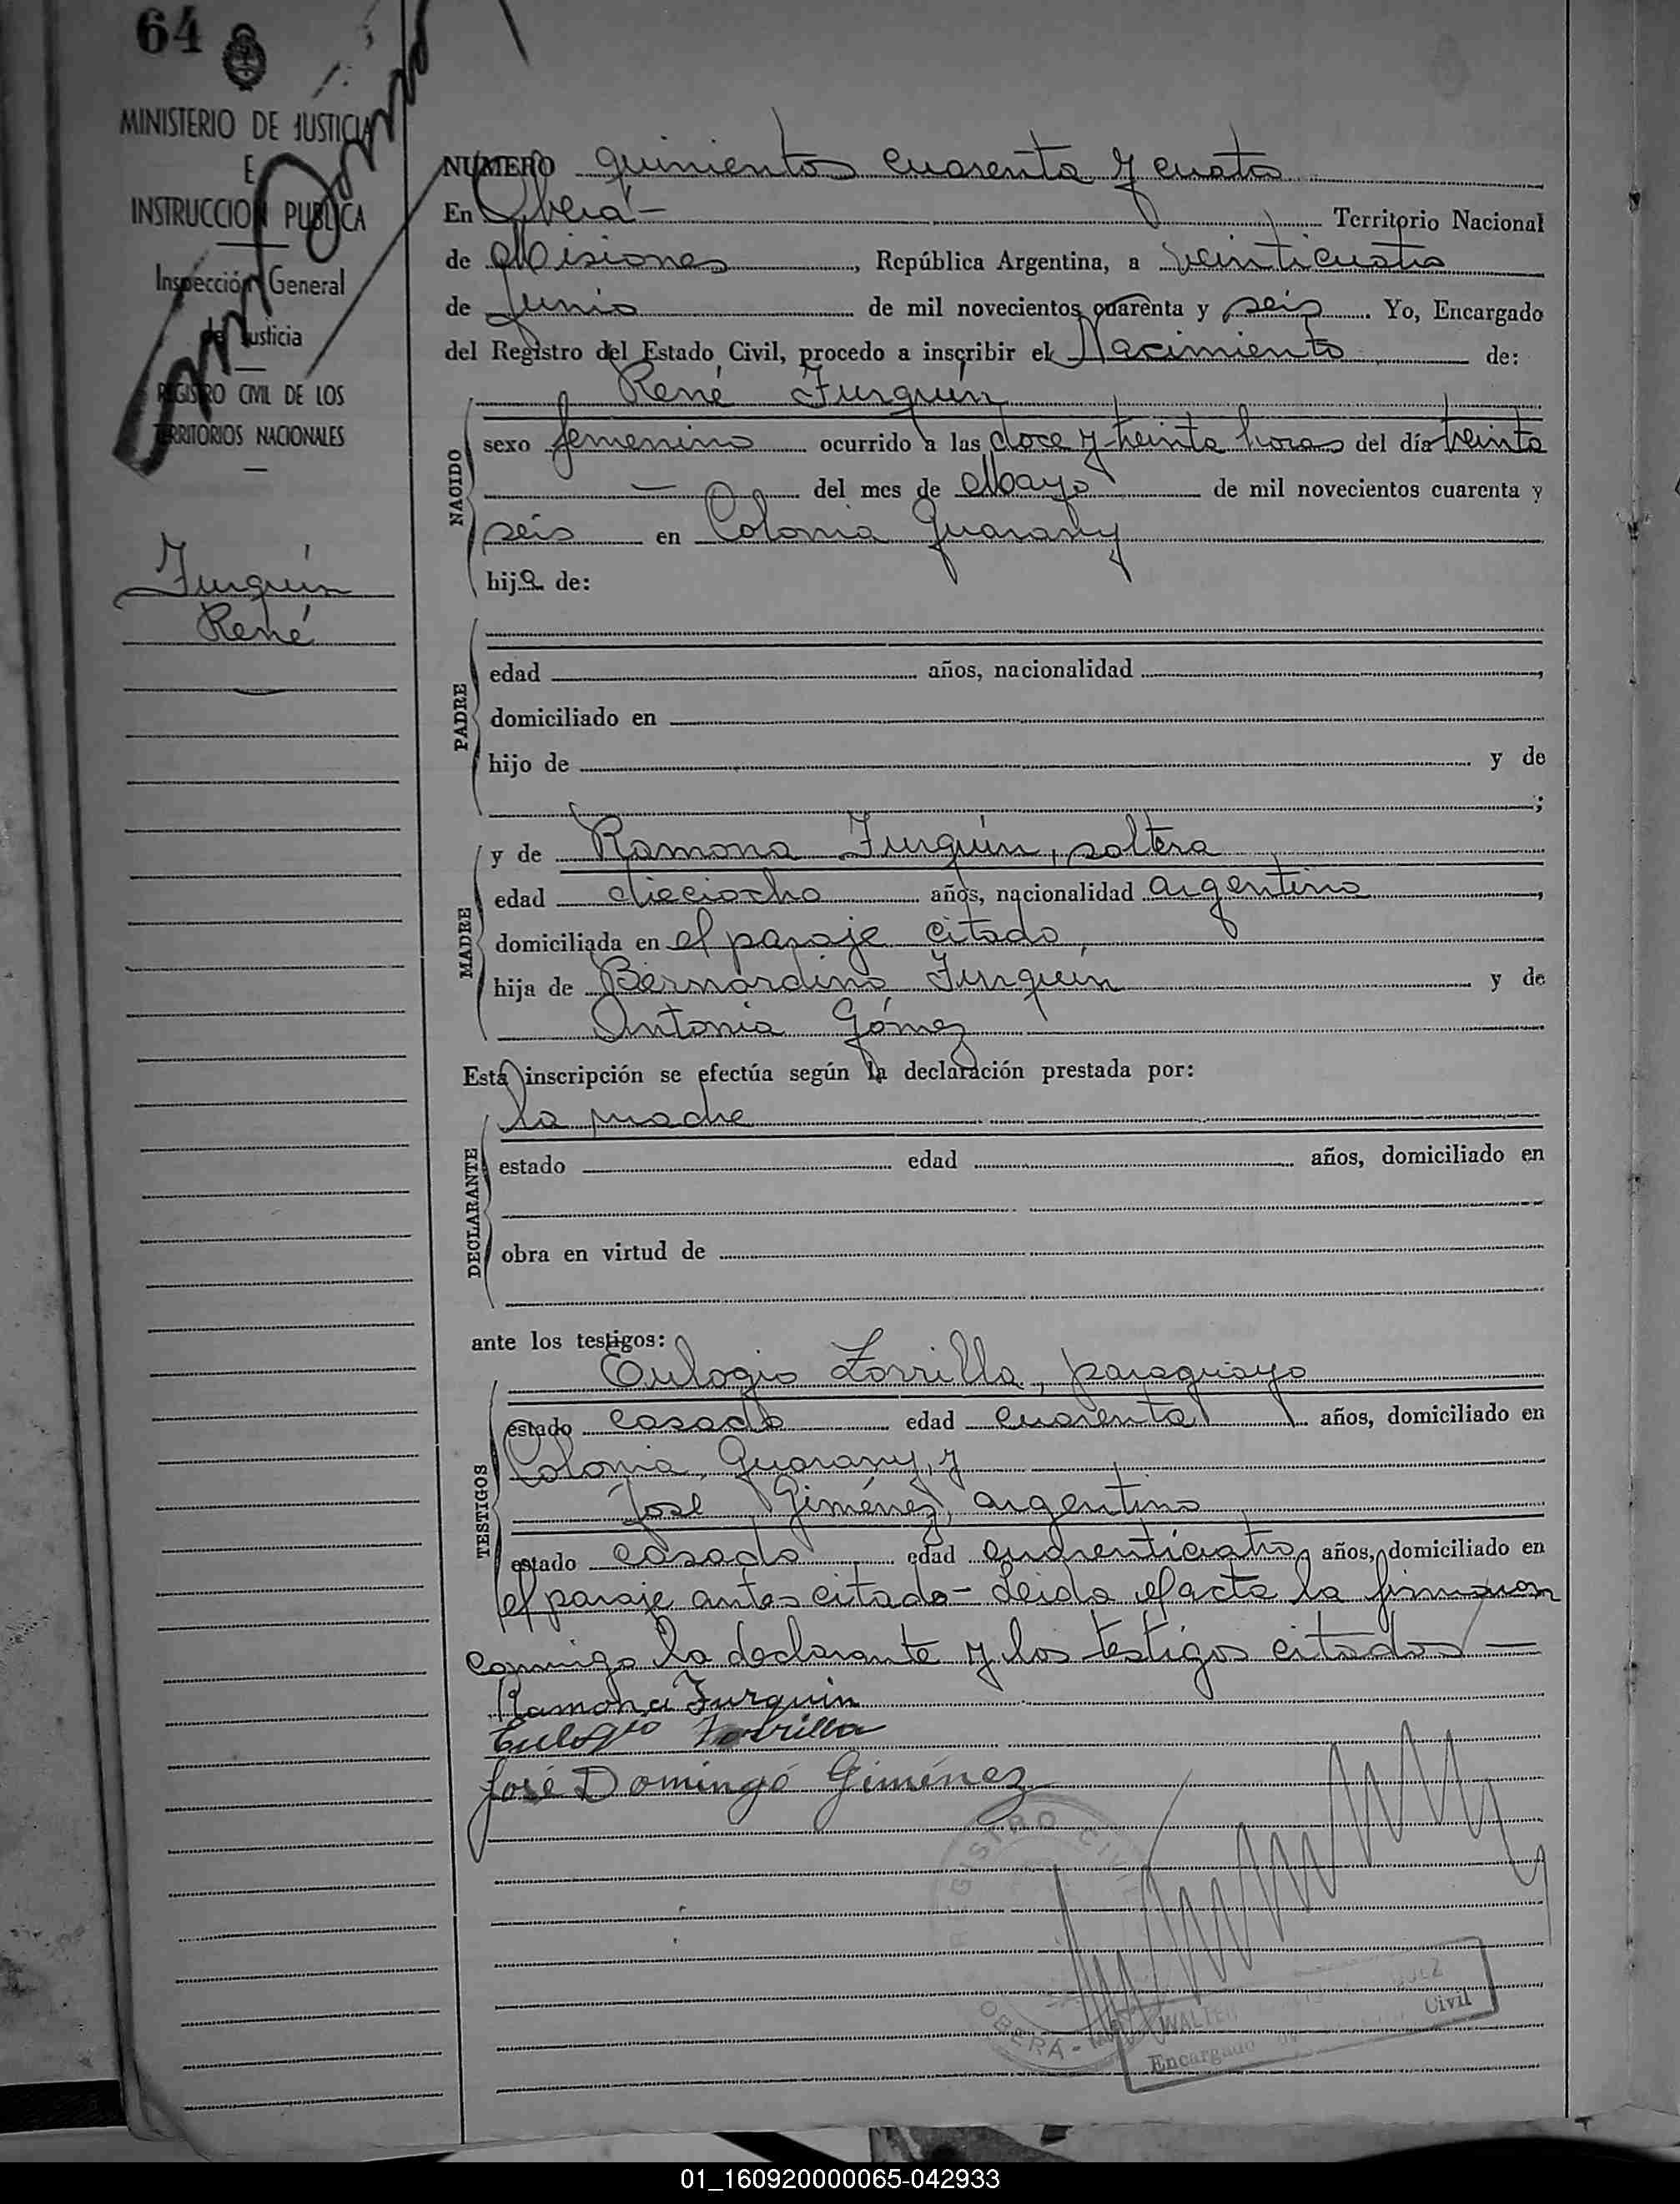 64
MINISTERIO DE JUSTICIA
E
INSTRUCCION PUBLICA
Inspección General
de Justicia
REGISTRO CIVIL DE LOS
TERRITORIOS NACIONALES
Jurquín
René
NUMERO quinientos cuarenta y cuatro
En Oberá - Territorio Nacional
de Misiones, República Argentina, a veinticuatro
de Junio de mil novecientos cuarenta y seis. Yo, Encargado
del Registro del Estado Civil, procedo a inscribir el Nacimiento de:
René Jurquín
NACIDO
sexo femenino ocurrido a las doce y treinta horas del día treinta
— del mes de Mayo de mil novecientos cuarenta y
seis en Colonia Guarany
hija de:
PADRE
edad años, nacionalidad ,
domiciliado en
hijo de y de
;
MADRE
y de Ramona Jurquín, soltera
edad dieciocho años, nacionalidad argentina,
domiciliada en el paraje citado,
hija de Bernardino Jurquín y de
Antonia Gómez
Esta inscripción se efectúa según la declaración prestada por:
DECLARANTE
la madre
estado edad años, domiciliado en
obra en virtud de
ante los testigos:
TESTIGOS
Eulogio Zorrilla, paraguayo
estado casado edad cuarenta años, domiciliado en
Colonia Guarany, y
José Giménez, argentino
estado casado edad cuarenticuatro años, domiciliado en
el paraje antes citado - Leida el acta la firmaron
conmigo la declarante y los testigos citados —
Ramona Jurquin
Eulogio Zorrilla
José Domingo Giménez
REGISTRO CIVIL
OBERA -
WALTER
Encargado Civil
01_160920000065-042933